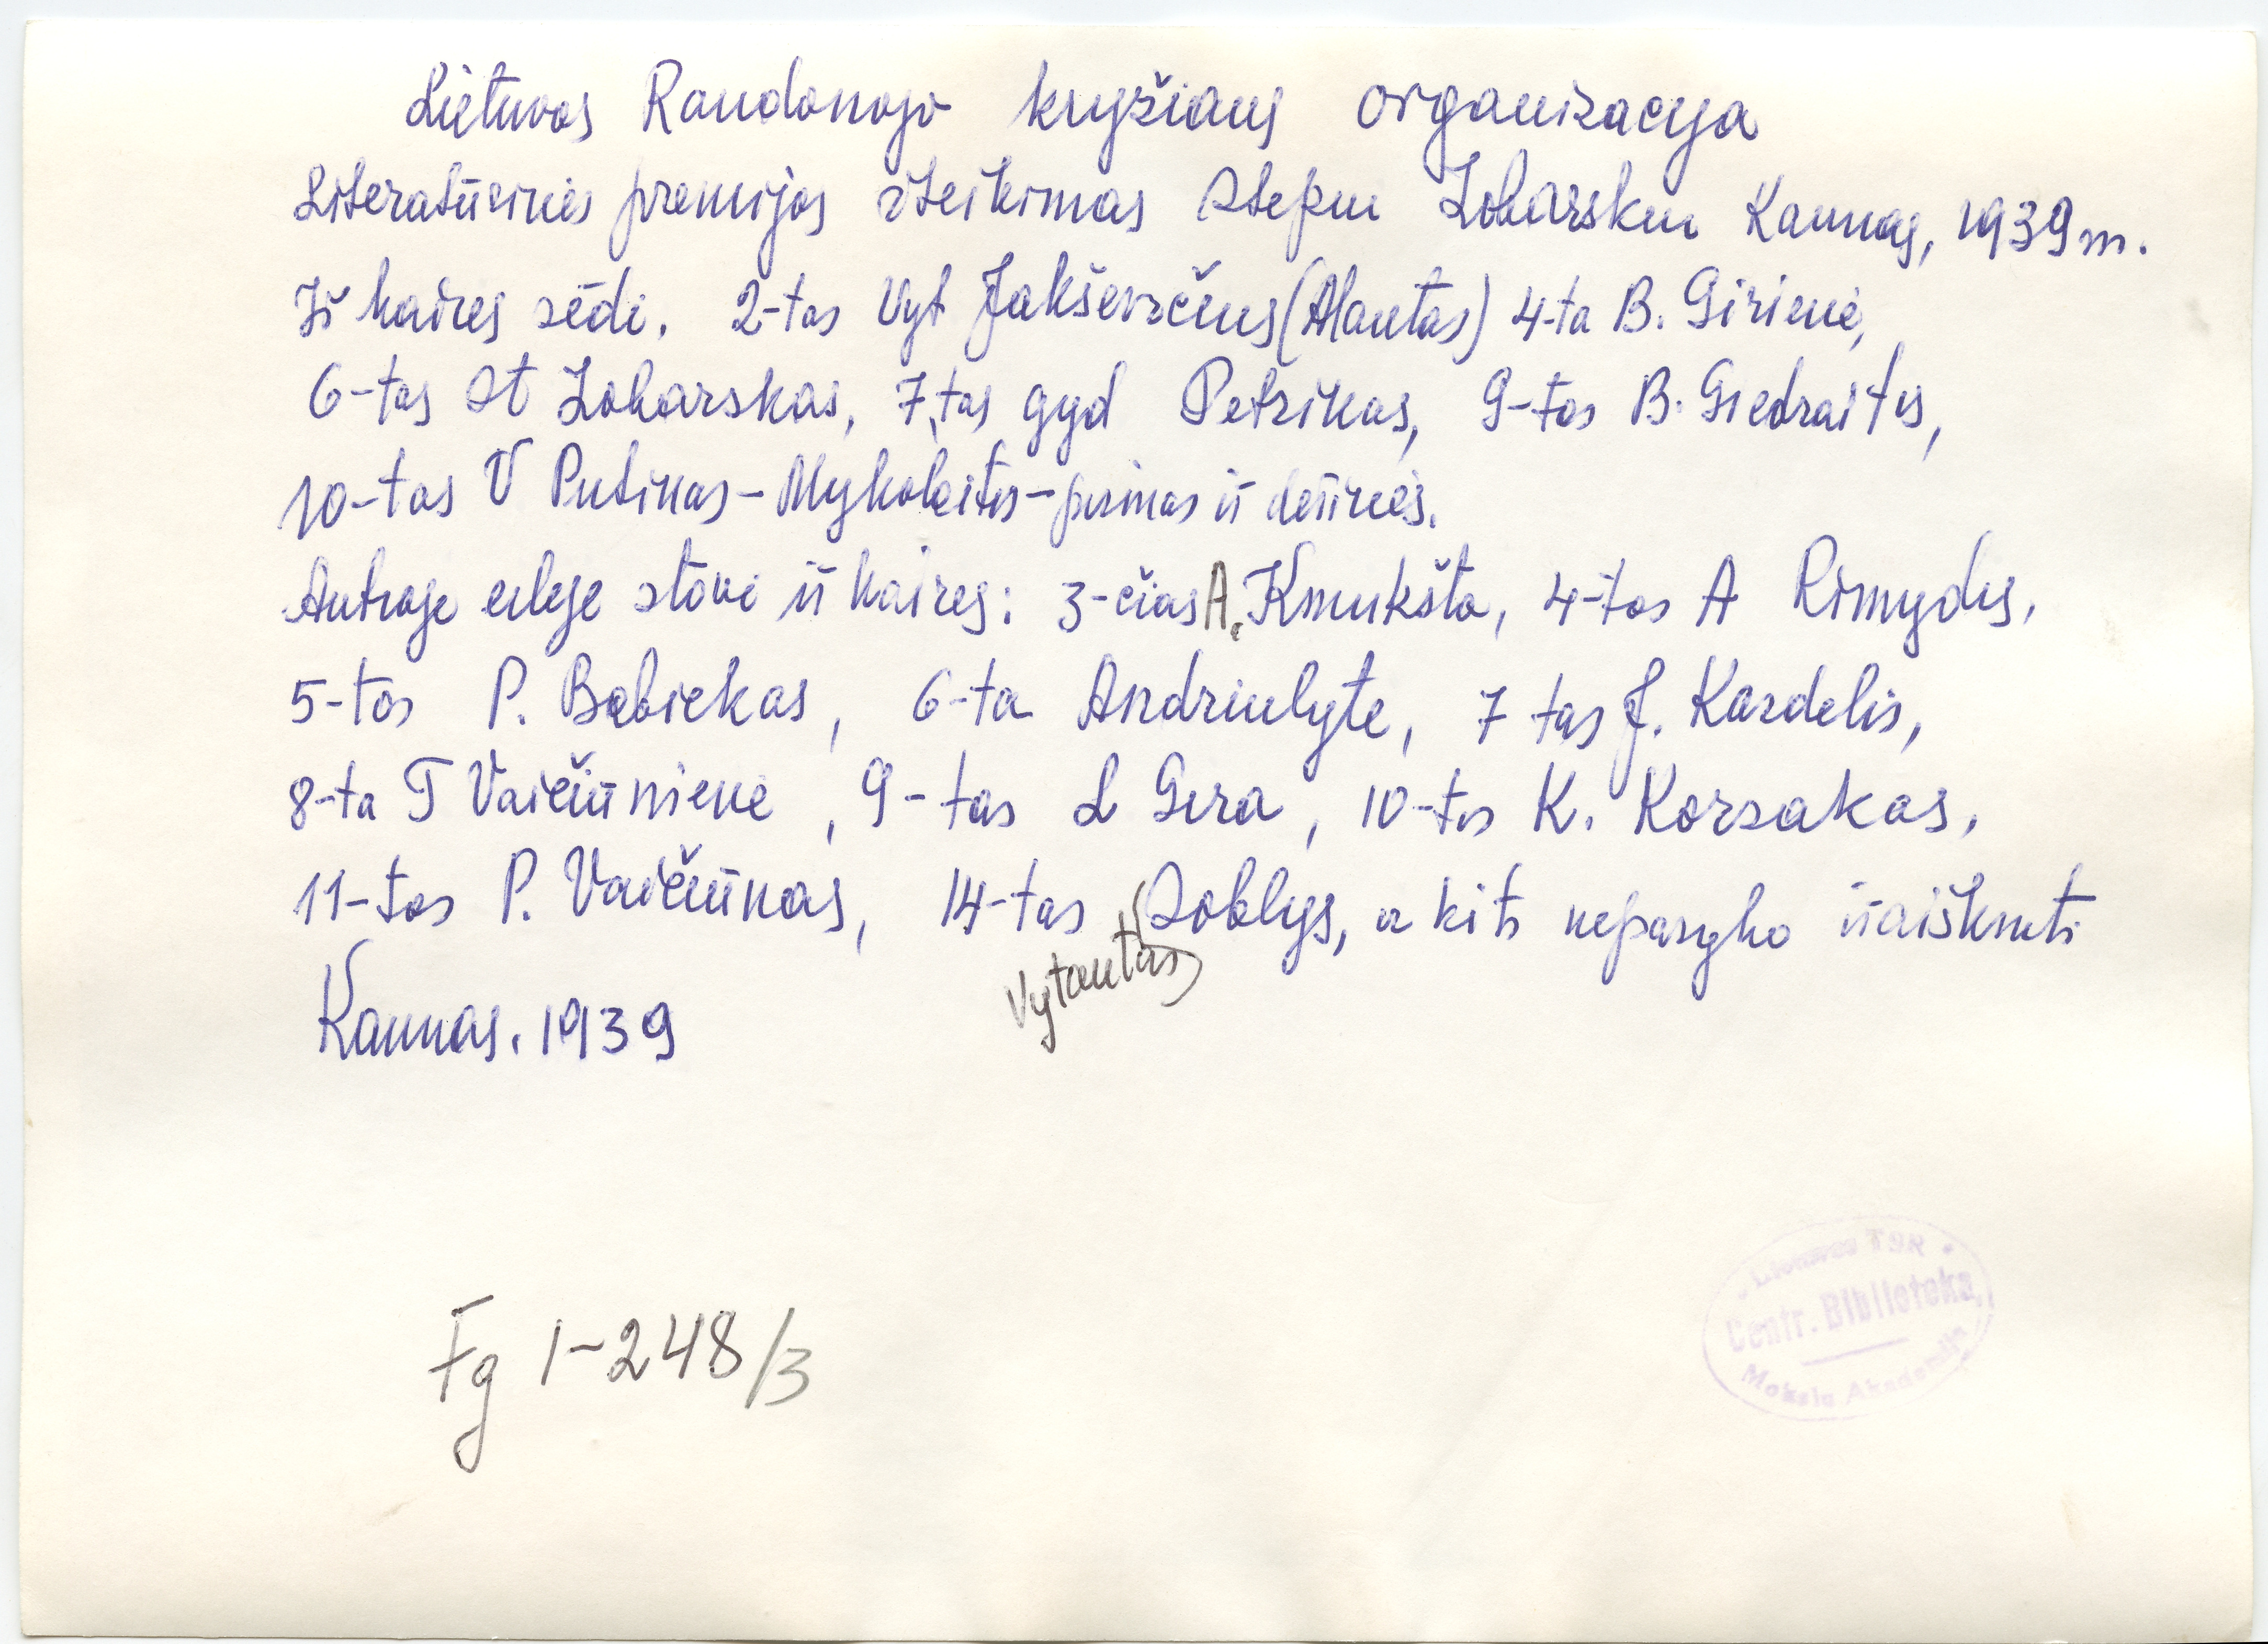 Lietuvos Raudonojo kryžiaus organizacija
Literatūrinės premijos įteikimas Stepui Zobarskui Kaunas, 1939 m.
Iš kairės sėdi. 2-tas Vyt Jakševičius (Alantas) 4-ta B. Girienė,
6-tas St Zobarskas, 7-tas gyd Petrikas, 9-tas B. Giedraitis,
10-tas V Putinas-Mykolaitis - pirmas iš dešinės.
Antroje eilėje stovi iš kairės: 3-čias A. Kmukšto, 4-tas A Rimydis,
5-tas P. Babickas, 6-ta Andriulytė, 7 tas J. Kardelis,
8-ta T Vaičiūnienė, 9-tas L Gira, 10-tas K. Korsakas,
11-tas P. Vaičiūnas, 14-tas Soblys, o kiti nepavyko išaiškinti
Vytautas
Kaunas. 1939
Lietuvos TSR
Centr. Biblioteka
Mokslų Akademija
Fg 1-248/3